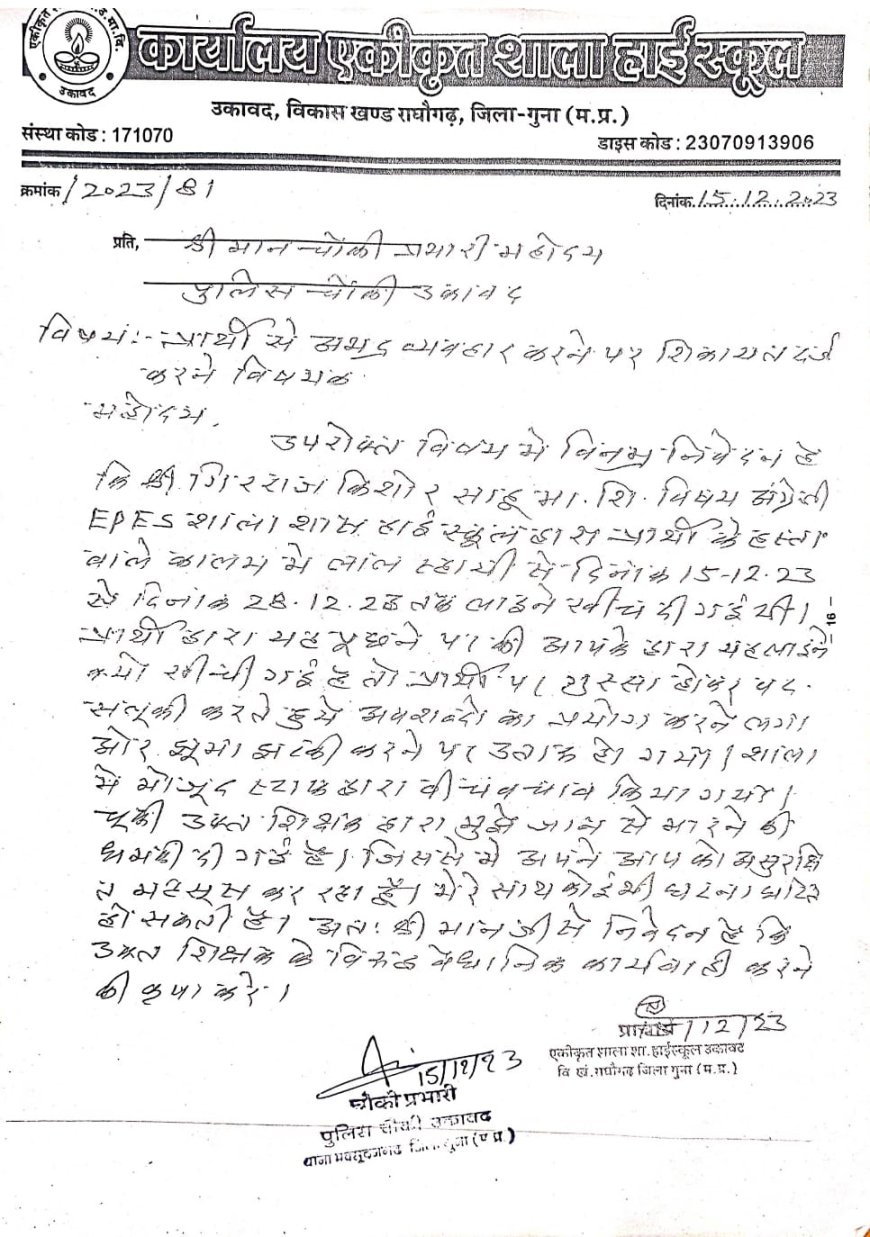 उकावद
कार्यालय एकीकृत शाला हाई स्कूल
उकावद, विकास खण्ड राघौगढ़, जिला-गुना (म.प्र.)
संस्था कोड : 171070
डाइस कोड : 23070913906
क्रमांक/2023/81
दिनांक 15.12.2023
प्रति, श्रीमान चौंकी प्रभारी महोदय
पुलिस चौंकी उकावद
विषय:- प्रार्थी से अभद्र व्यवहार करने पर शिकायत दर्ज
करने विषयक
महोदय,
उपरोक्त विषय मे विनम्र निवेदन है
कि श्री गिरराज किशोर साहू मा. शि. विषय अंग्रेजी
EPES शाला शास हाई स्कूल द्वारा प्रार्थी के हस्ता
वाले कालम मे लाल स्हायी से दिनांक 15-12-23
से दिनांक 28.12.23 तक लाइने खींच दी गई थी।
प्रार्थी द्वारा यह पूछने पर की आपके द्वारा यह लाइने
क्यो खीची गई है तो प्रार्थी पर गुस्सा होकर वद
सलूकी करते हुये अपशब्दो का प्रयोग करने लगा
और झूमा झटकी करने पर उतारू हो गया। शाला
मे मोजूद स्टाफ द्वारा वीच वचाव किया गया।
चूकी उक्त शिक्षक द्वारा मुझे जान से मारने की
धमकी दी गई है। जिससे मे अपने आप को असुरक्षि
त महसूस कर रहा हूँ। मेरे साथ कोई भी घटना घटित
हो सकती है। अत: श्री मान जी से निवेदन है कि
उक्त शिक्षक के विरूद्ध वैधानिक कार्यवाही करने
की कृपा करे।
- 16 -
/12/23
एकीकृत शाला शा. हाईस्कूल उकावद
वि खं. राघौगढ जिला गुना (म.प्र.)
15/12/23
चौकी प्रभारी
पुलिस चौकी उकावद
थाना मक्सूदनगढ जिला गुना (म.प्र.)